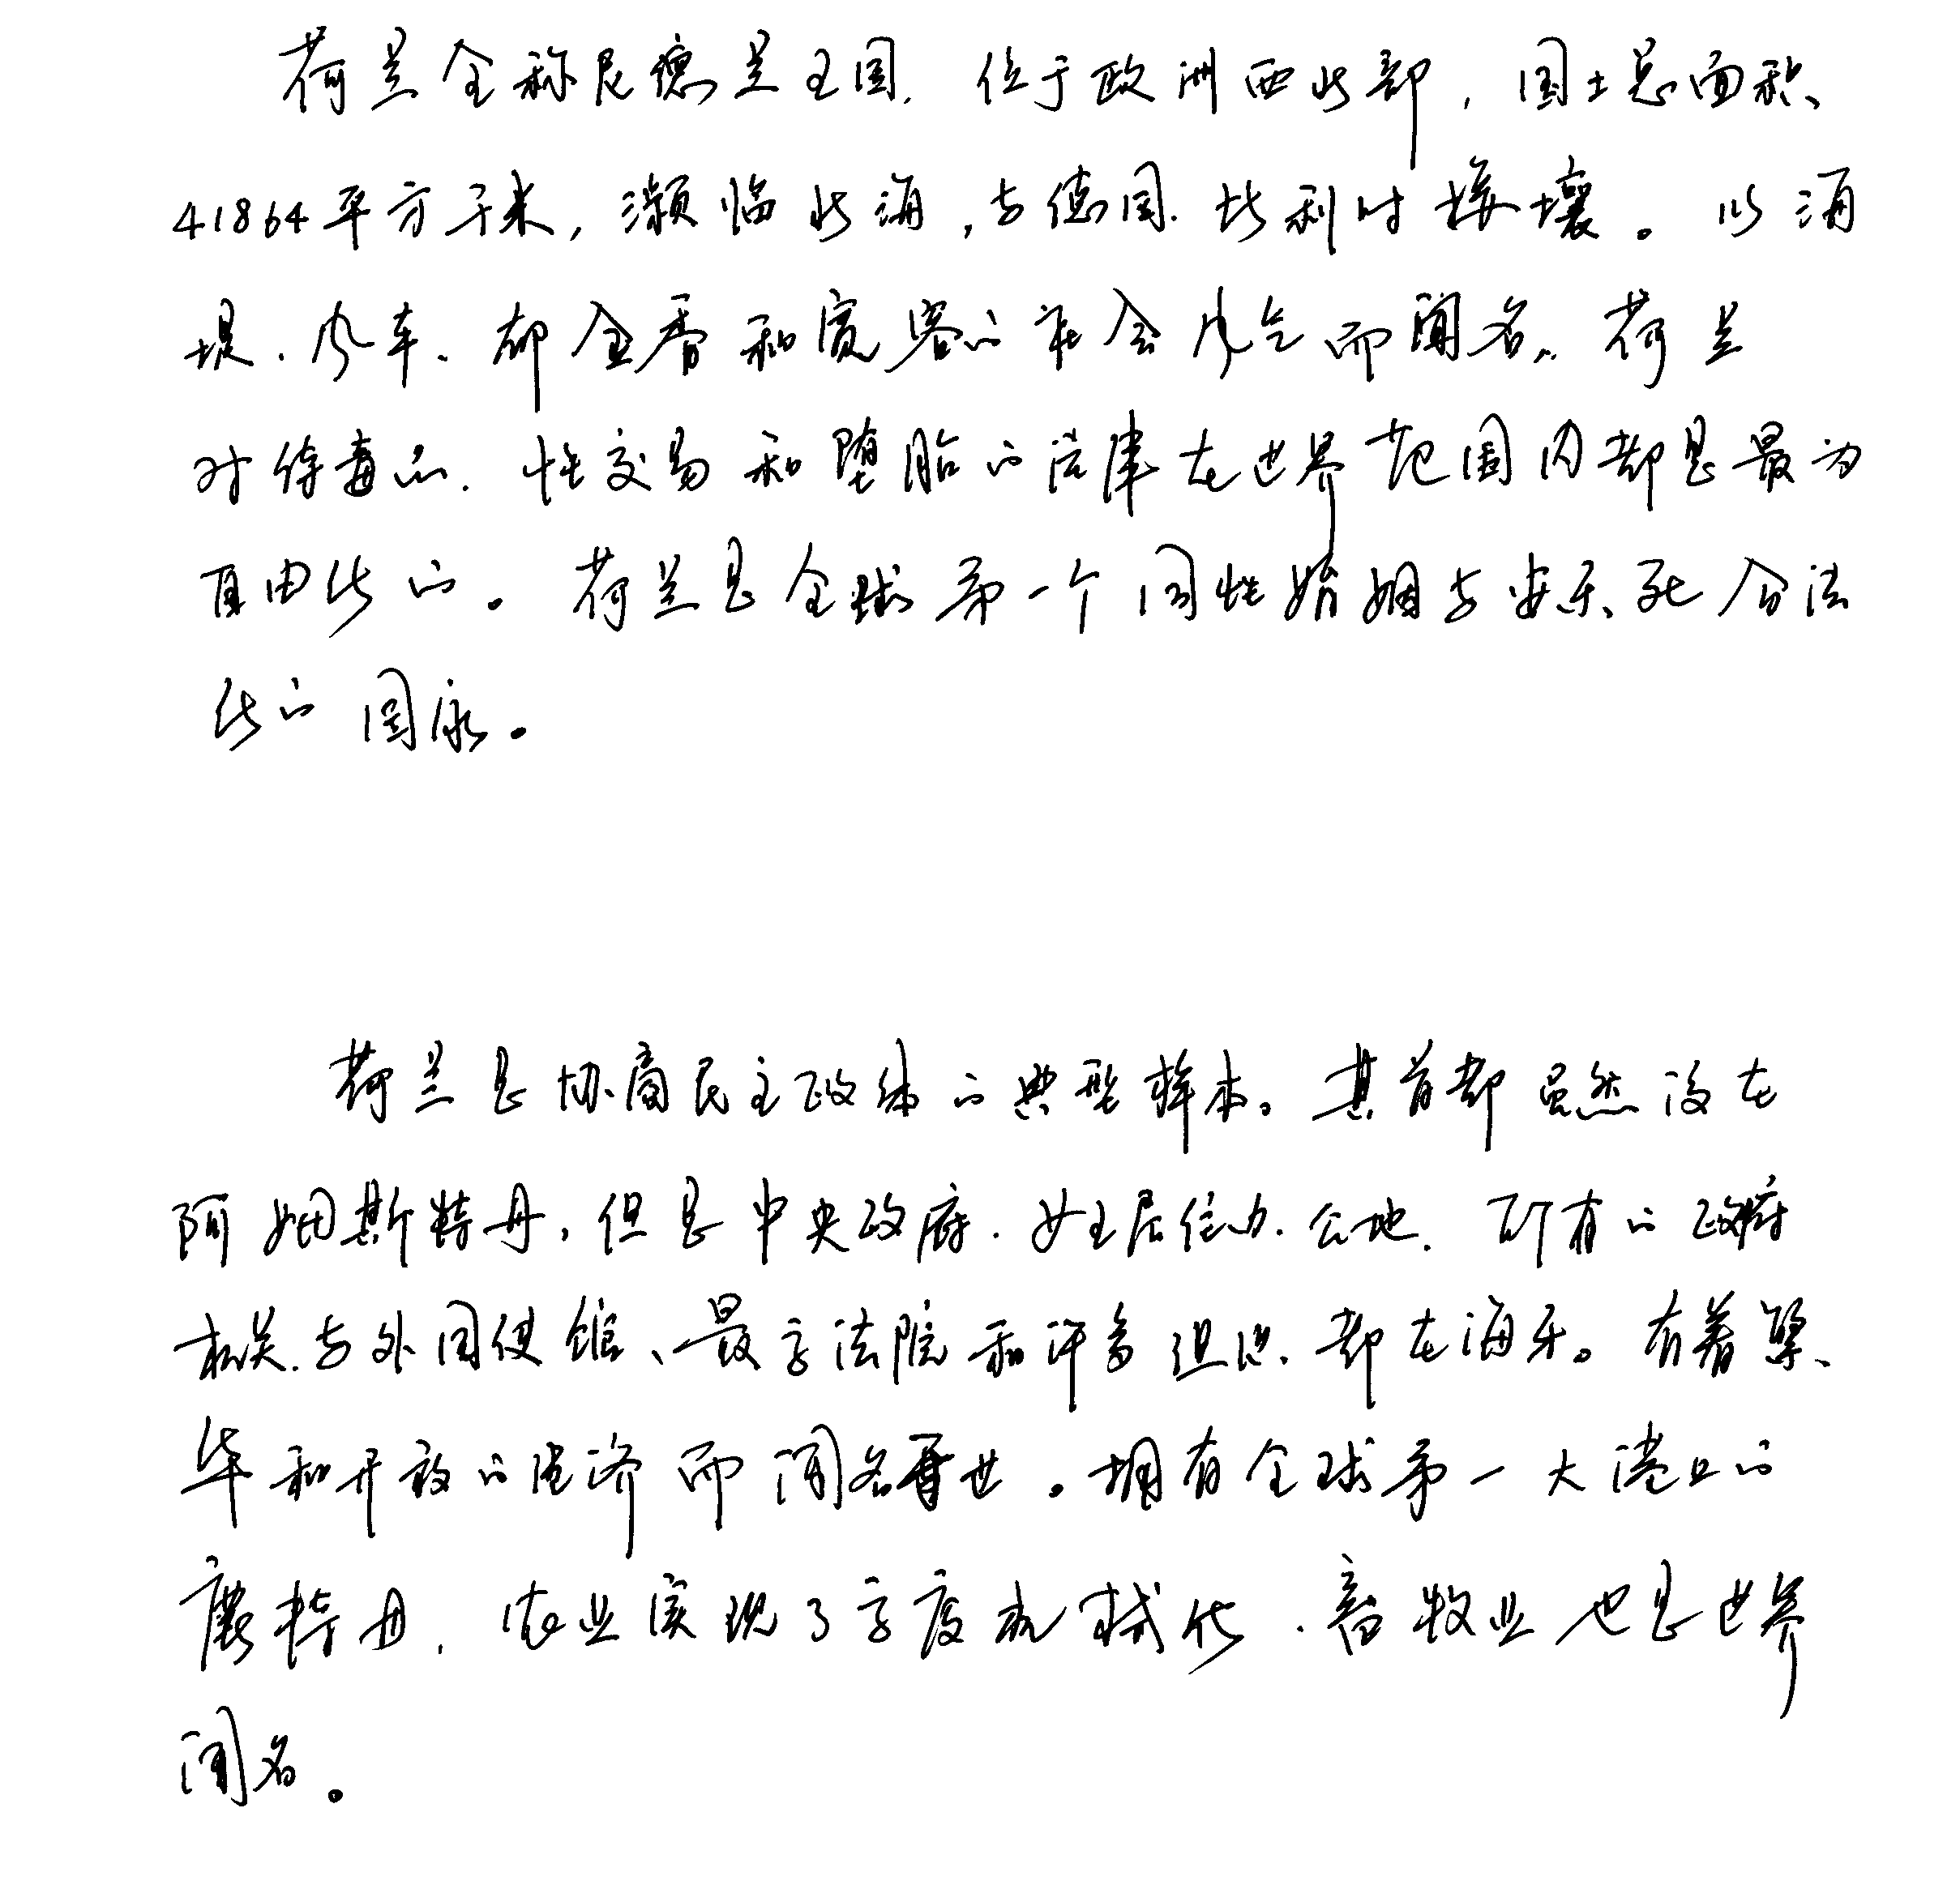 荷兰全称尼德兰王国，位于欧洲西北部，国土总面积
41864平方千米，濒临北海，与德国、比利时接壤。以海
堤、风车、郁金香和宽容的社会风气而闻名。荷兰
对待毒品、性交易和堕胎的法律在世界范围内都是最为
自由化的。荷兰是全球第一个同性婚姻与安乐死合法
化的国家。
荷兰是协商民主政体的典型样本。其首都虽然设在
阿姆斯特丹，但是中央政府、女王居住办公地、所有的政府
机关与外国使馆、最高法院和许多组织都在海牙。有着繁
华和开放的经济而闻名于世。拥有全球第一大港口的
鹿特丹，农业实现了高度机械化，畜牧业也是世界
闻名。